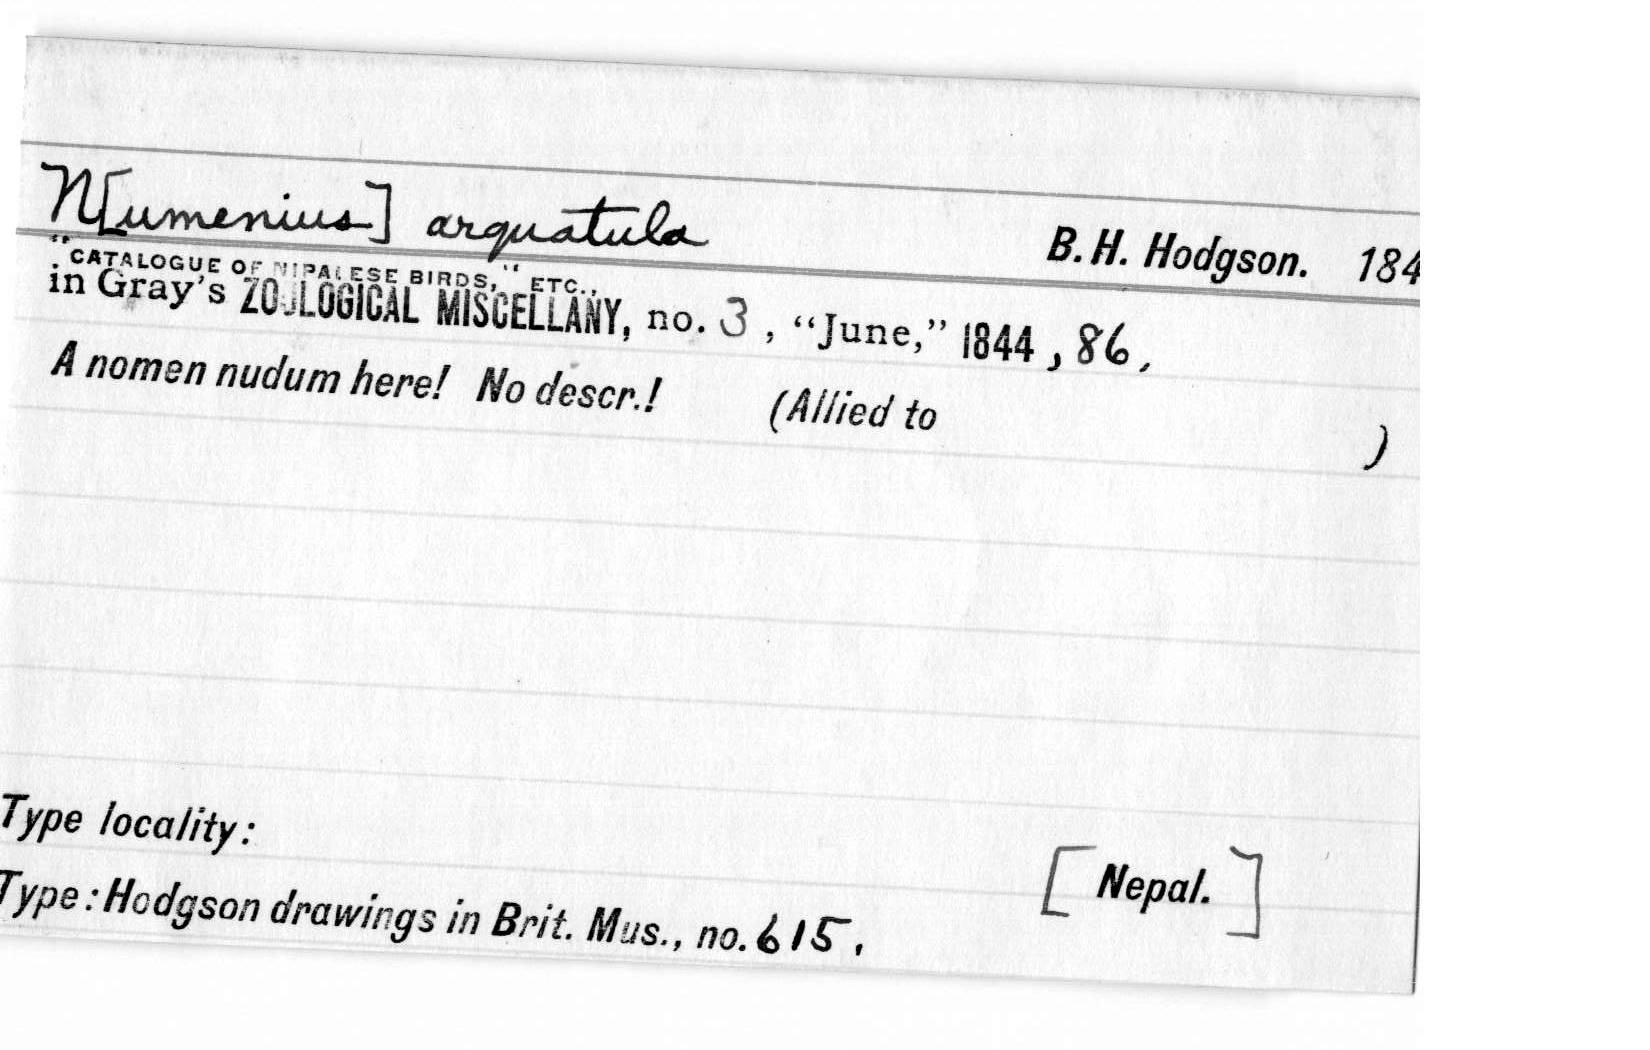 N[umenius] arquatula
B. H. Hodgson. 184
"CATALOGUE OF NIPALESE BIRDS," ETC.,
in Gray's ZOOLOGICAL MISCELLANY, no. 3, "June," 1844, 86,
A nomen nudum here! No descr.! (Allied to )
Type locality:
[Nepal.]
Type: Hodgson drawings in Brit. Mus., no. 615,